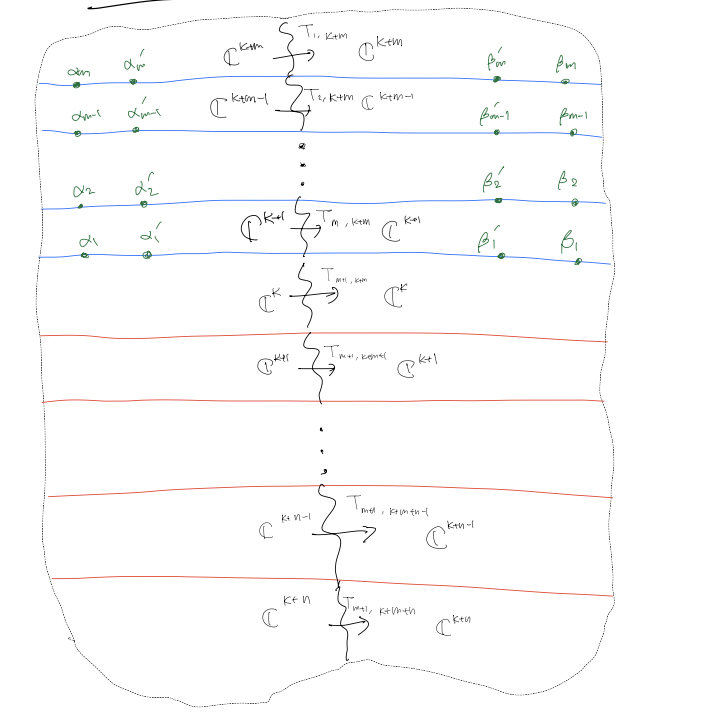 T₁, K+m
ℂᴷ⁺ᵐ ℂᴷ⁺ᵐ
αm αm′ βm′ βm
T₂, K+m
ℂᴷ⁺ᵐ⁻¹ ℂᴷ⁺ᵐ⁻¹
αm-1 α′m-1 β′m-1 βm-1
α₂ α₂′ β₂′ β₂
ℂᴷ⁺¹ Tm, K+m ℂᴷ⁺¹
α₁ α₁′ β₁′ β₁
Tm+1, K+m
ℂᴷ ℂᴷ
ℂᴷ⁺¹ Tm+1, K+m+1 ℂᴷ⁺¹
Tm+1, K+m+n-1
ℂᴷ⁺ⁿ⁻¹ ℂᴷ⁺ⁿ⁻¹
ℂᴷ⁺ⁿ Tm+1, K+m+n ℂᴷ⁺ⁿ